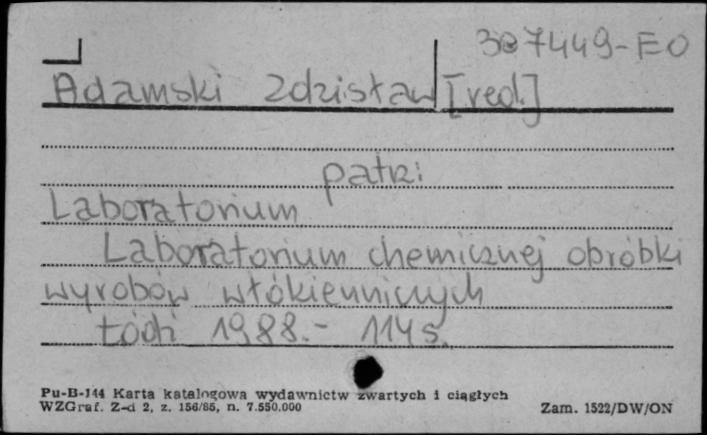 387449-EO
Adamski Zdzisław [red.]
patrz:
Laboratorium
Laboratorium chemicznej obróbki
wyrobów włókienniczych
Łódź 1988.- 114 s.
Pu-B-144 Karta katalogowa wydawnictw zwartych i ciągłych
WZGraf. Z-d 2, z. 156/85, n. 7.550.000
Zam. 1522/DW/ON